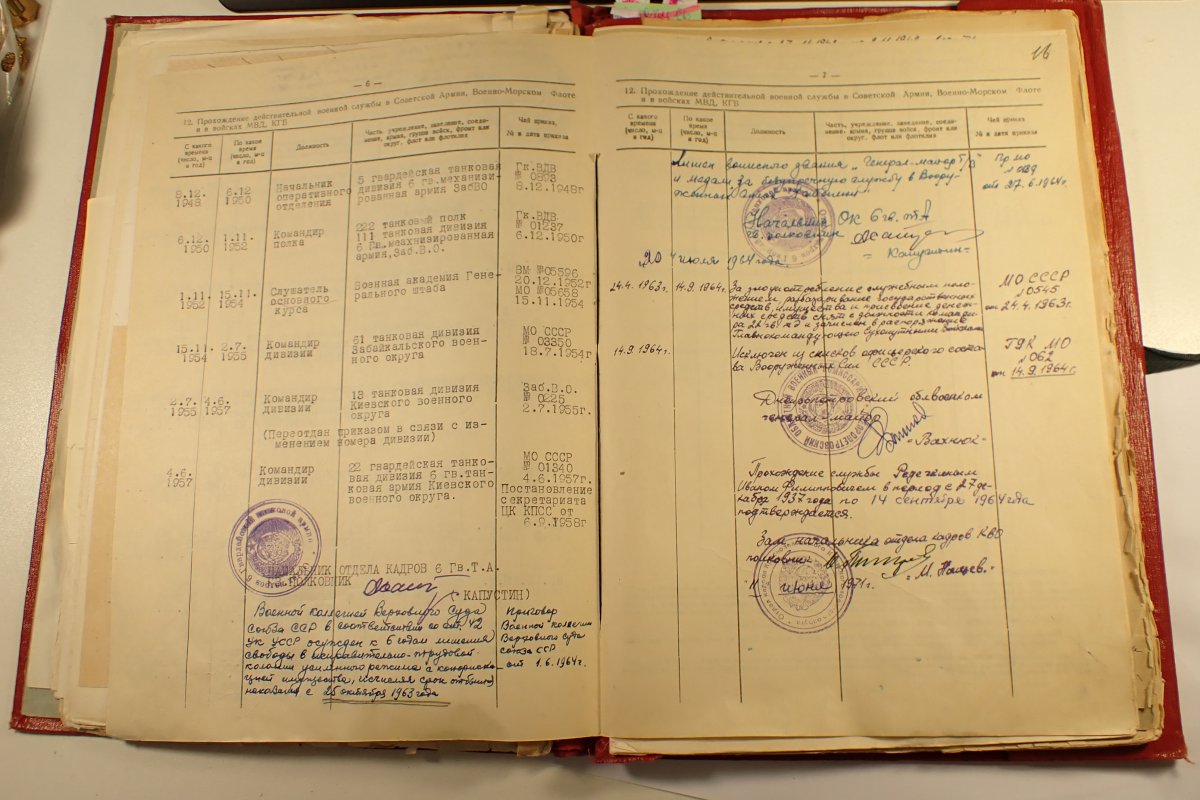 — 6 —
12. Прохождение действительной военной службы в Советской Армии, Военно-Морском Флоте
и в войсках МВД, КГБ
С какого времени (число, м-ц и год)
По какое время (число, м-ц и год)
Должность
Часть, учреждение, заведение, соедине-
ние, армия, группа войск, фронт или
округ, флот или флотилия
Чей приказ
№ и дата приказа
8.12. 1948
6.12 1950
Начальник
оперативного
отделения
5 гвардейская танковая
дивизия 6 гв.механизи-
рованная армия ЗабВО
Гк.ВДВ
№ 0893
8.12.1948г
6.12. 1950
1.11. 1952
Командир
полка
222 танковый полк
111 танковая дивизия
6 Гв.механизированная
армия,Заб.В.О.
Гк.ВДВ
№ 01237
6.12.1950г
1.11. 1952
15.11. 1954
Слушатель
основного
курса
Военная академия Гене-
рального штаба
ВМ №05596
20.12.1952г
МО №05658
15.11.1954
15.11. 1954
2.7. 1955
Командир
дивизии
61 танковая дивизия
Забайкальского воен-
ного округа
МО СССР
№ 03350
18.7.1954г
2.7. 1955
4.6. 1957
Командир
дивизии
13 танковая дивизия
Киевского военного
округа
Заб.В.О.
№ 0225
2.7.1955г.
(Переотдан приказом в связи с из-
менением номера дивизии)
4.6. 1957
Командир
дивизии
22 гвардейская танко-
вая дивизия 6 гв.тан-
ковая армия Киевского
военного округа.
МО СССР
№ 01340
4.6.1957г.
Постановление
секретариата
ЦК КПСС от
6.9.1958г
НАЧАЛЬНИК ОТДЕЛА КАДРОВ 6 Гв.Т.А.
ПОЛКОВНИК
(КАПУСТИН)
Военной коллегией Верховного Суда
Союза ССР в соответствии со ст. 42
УК УССР осужден к 6 годам лишения
свободы в исправительно-трудовой
колонии усиленного режима с конфиска-
цией имущества, исчисляя срок отбытия
наказания с 25 октября 1963 года
Приговор
Военной коллегии
Верховного суда
союза ССР
от 1.6.1964г.
16
— 7 —
12. Прохождение действительной военной службы в Советской Армии, Военно-Морском Флоте
и в войсках МВД, КГБ
С какого времени (число, м-ц и год)
По какое время (число, м-ц и год)
Должность
Часть, учреждение, заведение, соеди-
нение, армия, группа войск, фронт или
округ, флот или флотилия
Чей приказ
№ и дата приказа
Лишен воинского звания „Генерал-майор т/в"
и медали „За безупречную службу в Воору-
женных
Пр МО
от 27.6.1964г.
Начальник ОК 6 гв. ТА
гв. полковник
= Капустин=
„20" июля 1964 года.
24.4.1963г.
14.9.1964г.
За злоупотребление служебным поло-
жением, разбазаривание государственных
средств, имущества и присвоение денеж-
ных средств снят с должности команди-
ра 22 гв т д и зачислен в распоряжение
Главнокомандующего Сухопутными войсками
МО СССР
№ 0545
от 24.4.1963г.
14.9.1964г.
Исключен из списков офицерского соста-
ва Вооруженных Сил СССР.
ГУК МО
№ 062
от 14.9.1964г
Днепропетровский облвоенком
генерал-майор
-Вахнюк-
Прохождение службы
Иваном Филипповичем в период с 27 де-
кабря 1937 года по 14 сентября 1964 года
подтверждается.
Зам. начальника отдела кадров КВО
полковник
"М.
11 июня 1971г.